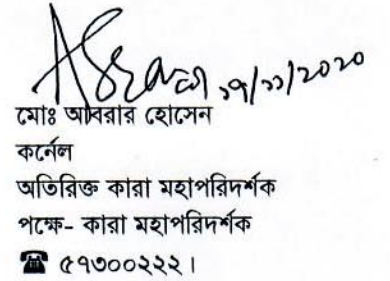 ১৭/১১/2020
মোঃ আবরার হোসেন
কর্নেল
অতিরিক্ত কারা মহাপরিদর্শক
পক্ষে- কারা মহাপরিদর্শক
☎ ৫৭৩০০২২২।